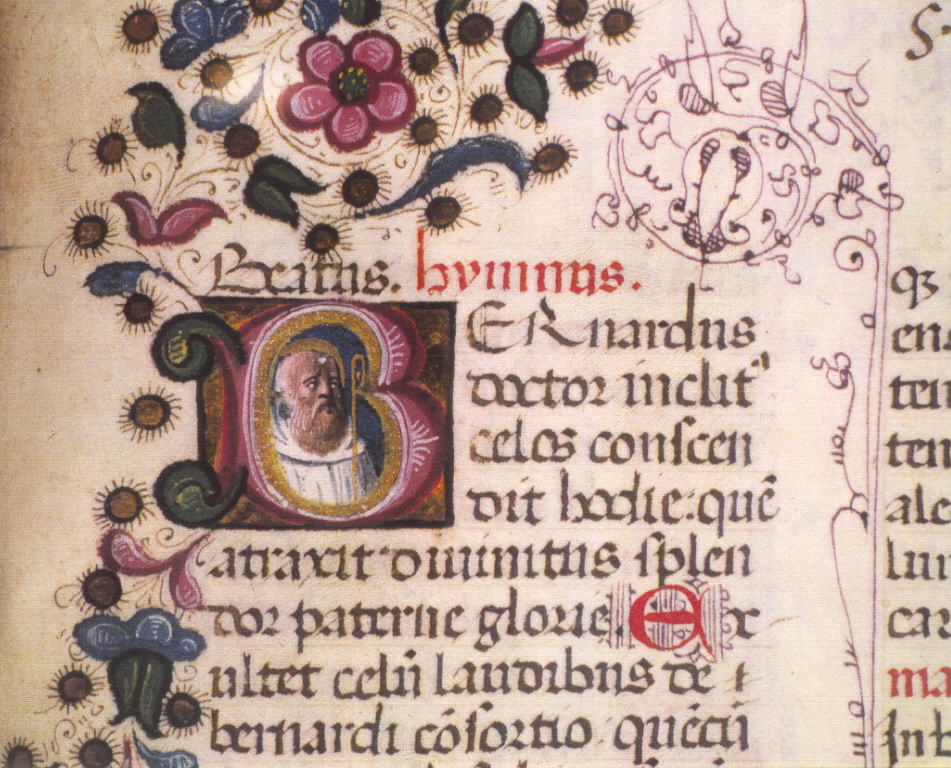 Beatus. hymnus.
BERnardus
doctor inclit⁹
celos conscen
dit hodie: quē
atraxit divinitus splen
dor paterne glorie. Ex
ultet celū laudibus de
bernardi cōsortio quē cū
S
qz
ens
ten
ale
lui
car
ma
In b